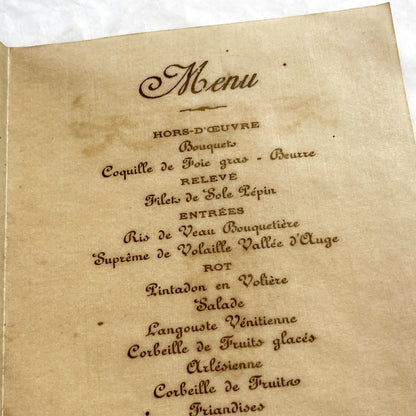 Menu
HORS-D'ŒUVRE
Bouquets
Coquille de Foie gras - Beurre
RELEVÉ
Filets de Sole Pépin
ENTRÉES
Ris de Veau Bouquetière
Suprême de Volaille Vallée d'Auge
ROT
Pintadon en Volière
Salade
Langouste Vénitienne
Corbeille de Fruits glacés
Arlésienne
Corbeille de Fruits
Friandises